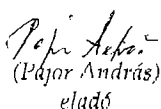 (Pajor András)
eladó